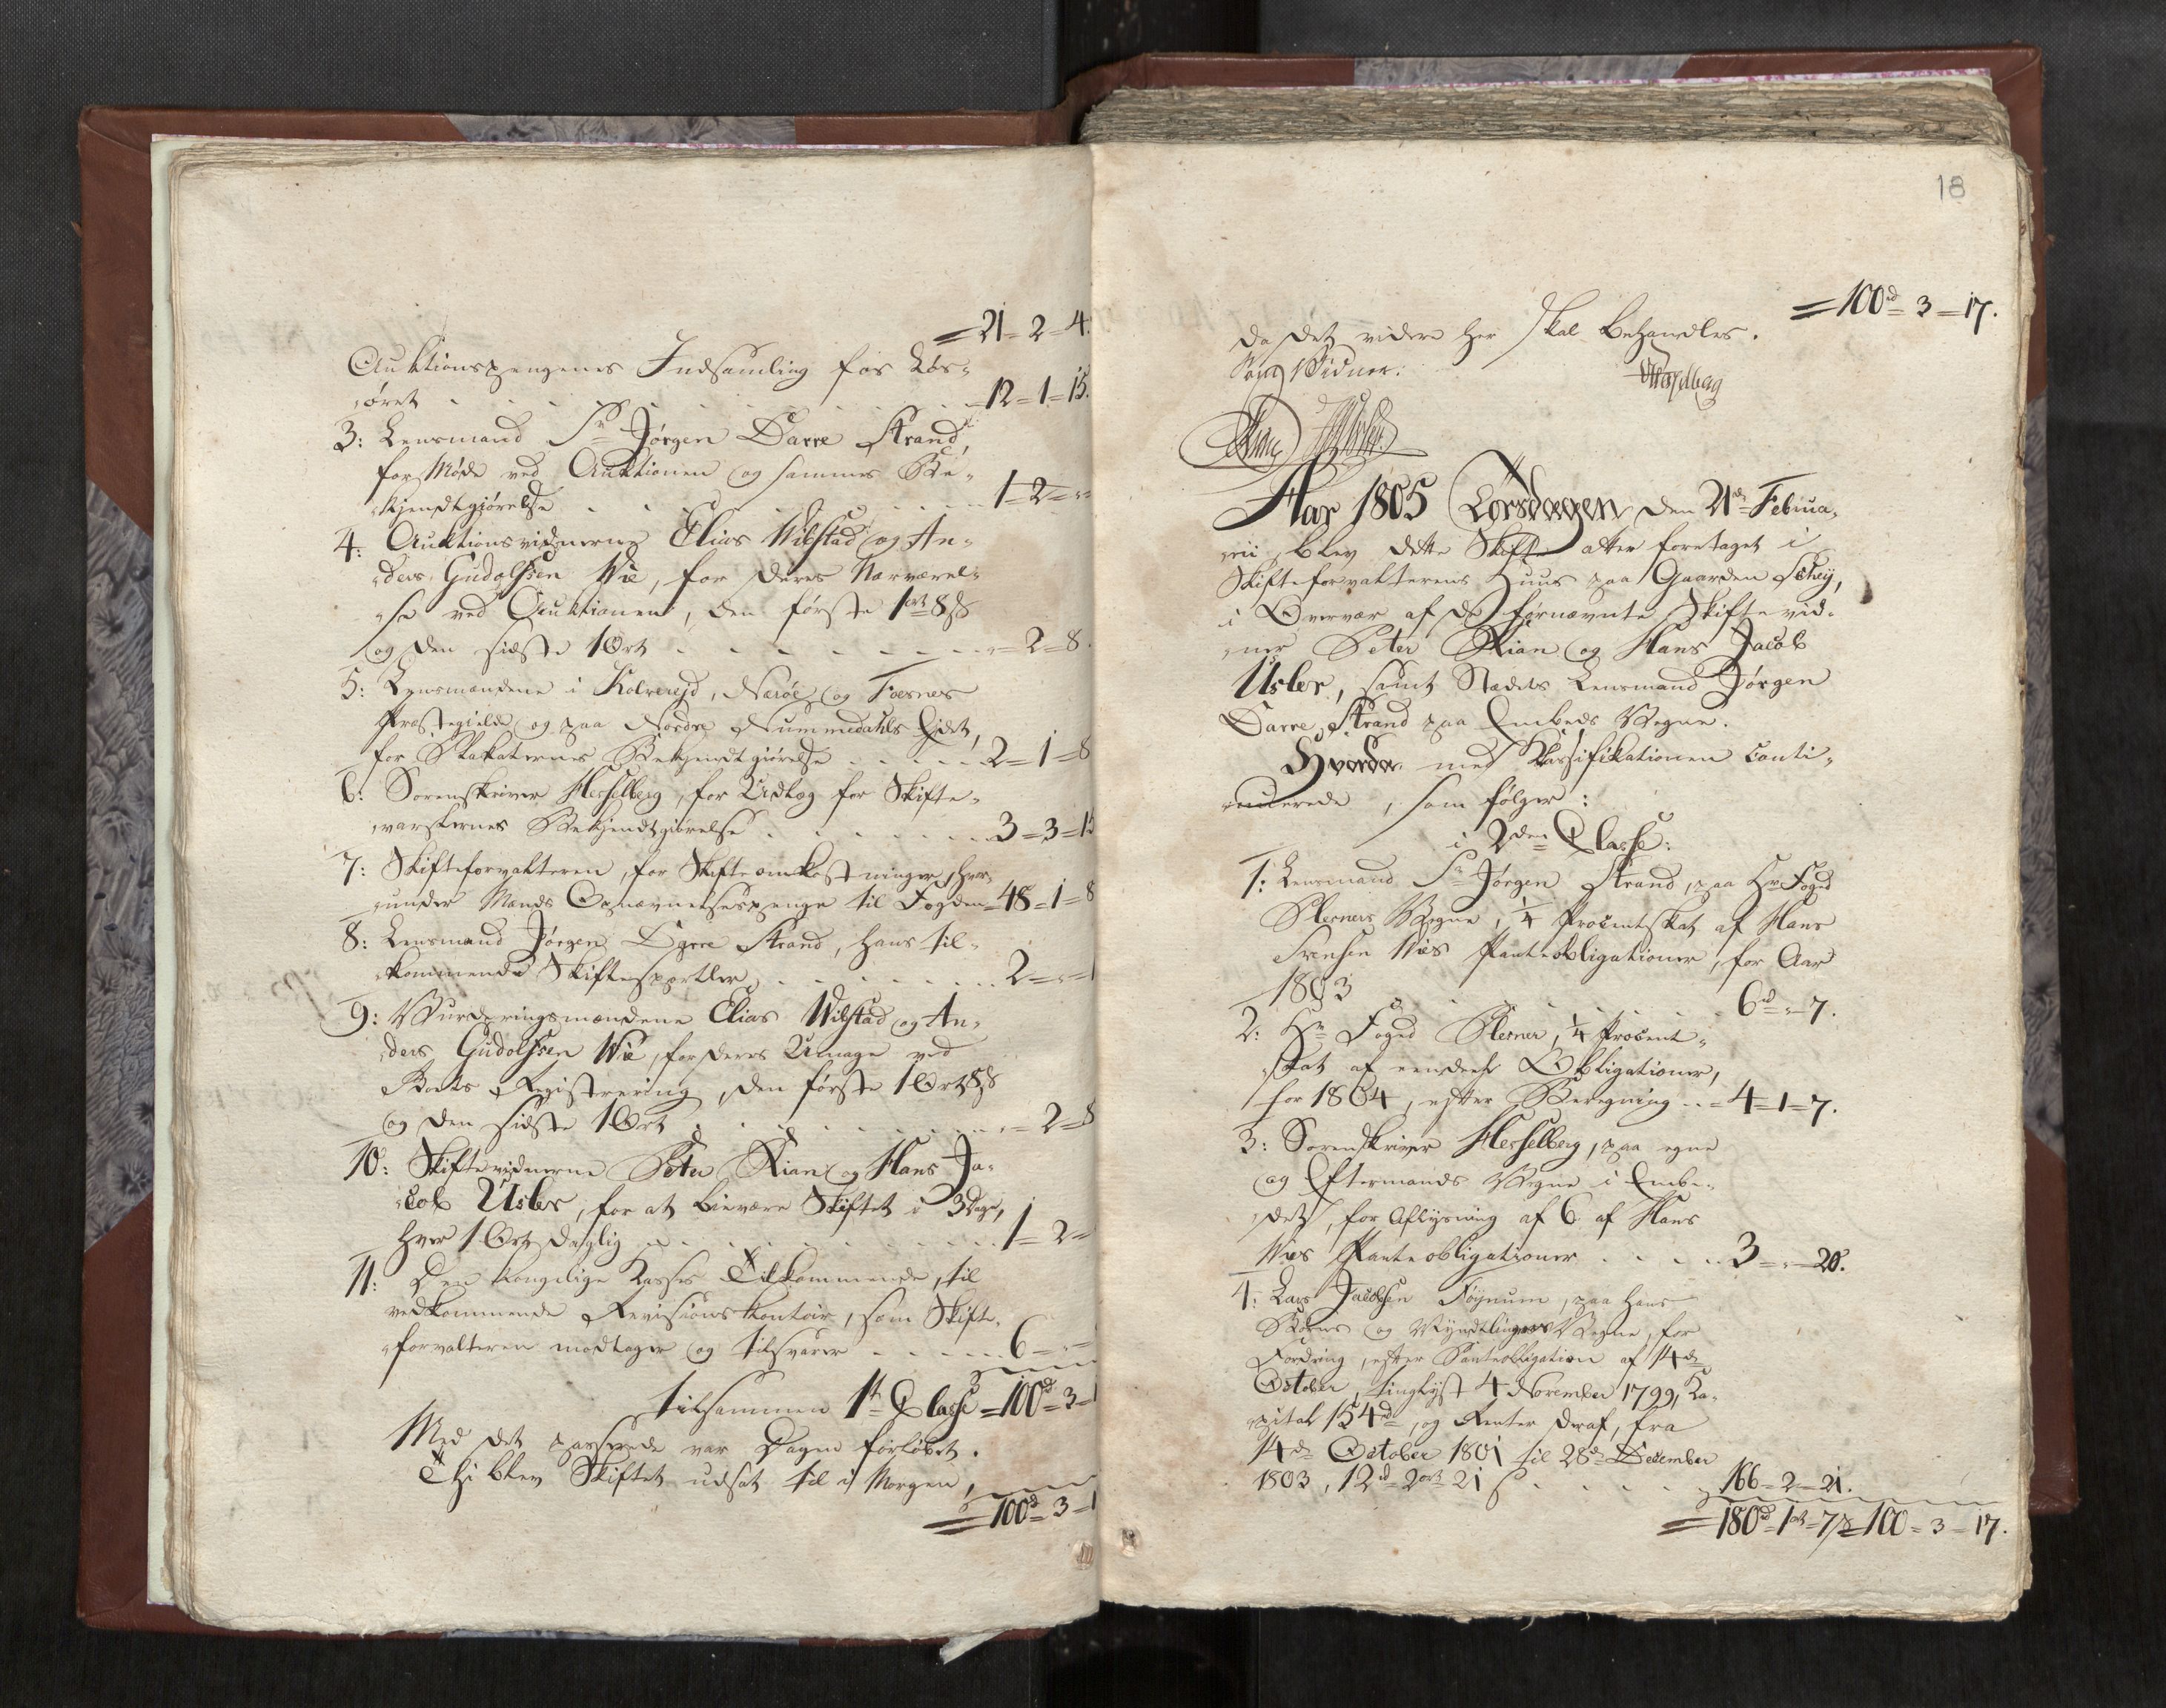 = 21 = 2 = 4.
Auktionspengenes Indsamling for Løs-
øret . . . . . . . . 12 = 1 = 15.
3: Lensmand Sr Jørgen Darre Strand,
for Møde ved Auktionen og sammes Be-
kjendtgjørelse . . . . . . 1 = 2 = "
4: Auktionsvidnerne Elias Wibstad og An-
ders Gudolfsen Wie, for deres Nærværel-
se ved Auktionen, den første 1 ort 8 s
og den sidste 1 Ort . . . . . " = 2 = 8.
5: Lensmændene i Kolvereid, Nærøe og Foesnes
Præstegield og paa Nordre Nummedahls Eidet,
for Plakaternes Bekjendtgjørelse . . . . 2 = 1 = 8
6: Sorenskriver Hesselberg, for Udlæg for Skifte-
varslernes Bekjendtgjørelse . . . . 3 = 3 = 15
7: Skifteforvalteren, for Skifteomkostninger, her-
under Mænds Opnævnelsespenge til Fogden = 48 = 1 = 8
8: Lensmand Jørgen Darre Strand, hans til-
kommende Skiftesportler . . . . . 2 = " =
9: Vurderingsmændene Elias Wibstad og An-
ders Gudolfsen Wie, for deres Umage ved
Boets Registrering, den første 1 Ort 8 s
og den sidste 1 Ort . . . . . . " = 2 = 8
10: Skiftevidnerne Peter Rian og Hans Ja-
cob Usler, for at bievære Skiftet i 3 Dage,
hver 1 Ort daglig . . . . . . 1 = 2 =
11: Den kongelige Kasses Tilkommende, til
vedkommende Revisions Kontoir, som Skifte-
forvalteren modtager og tilsvarer . . . . . 6 = " =
tilsammen 1te Classe = 100 d = 3 = 1
Med det passerede var Dagen forløbet.
Thi blev Skiftet udsat til i Morgen,
= 100 d = 3 = 1
18
= 100 rd = 3 = 17.
da det videre her skal behandles.
Som Vidner: Hesselberg
Aar 1805 Løverdagen den 2de Februa-
rii, blev dette Skifte atter foretaget i
Skifteforvalterens Huus paa Gaarden Schey,
i Overvær af de fornævnte Skiftevid-
ner Peter Rian og Hans Jacob
Usler, samt Stedets Lensmand Jørgen
Darre Strand paa Embeds Vegne.
Hvorda med Klassifikationen conti-
nuerede, som følger:
i 2den Classe:
1: Lensmand Sr Jørgen Strand, paa Hr Foged
Blerners Vegne, 1/4 Procentskat af Hans
Svensen Wies Panteobligationer, for Aar
1803 . . . . . . 6 rd = " = 7.
2: Hr Foged Blerner, 1/4 Procent-
skat af eendeel Obligationer,
for 1804, efter Beregning . . = 4 = 1 = 7.
3: Sorenskriver Hesselberg, paa egne
og Eftermands Vegne i Embe-
det, for Aflysning af 6 af Hans
Wies Panteobligationer . . . . 3 = " = 20.
4: Lars Jacobsen Føynum, paa hans
Børns og Myndlingers Vegne, for
Fordring, efter Panteobligation af 14de
October, tinglyst 4 November 1799, Ka-
pital 154 rd, og Renter deraf, fra
14de October 1801 til 28de December
1803, 12 rd 2 ort 21 s . . . . . 166 = 2 = 21.
= 180 rd = 1 ort = 7 s = 100 = 3 = 17.